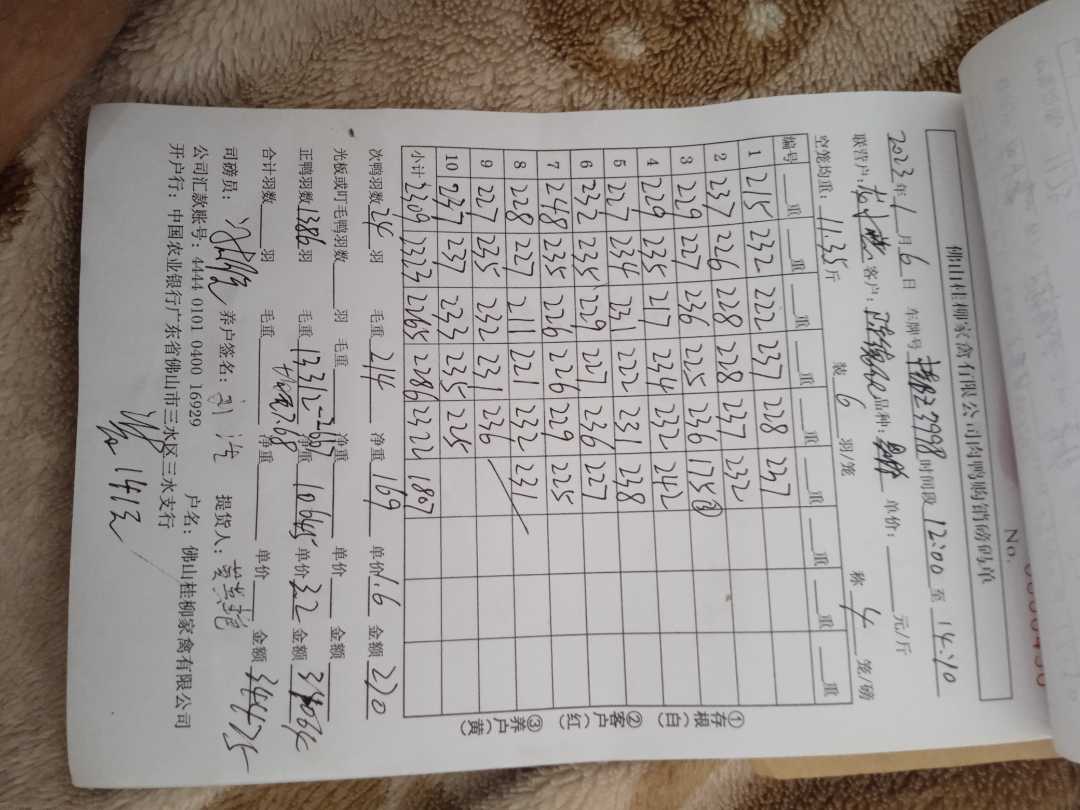 No.
佛山桂柳家禽有限公司肉鸭购销磅码单
2023年1月6日 车牌号 3998 时间段 12:00 至 14:10
联营户: 客户: 品种: 单价: 元/斤
空笼均重: 11.35斤 装 6 羽/笼 称 4 笼/磅
编号 重 重 重 重 重 重 重 重 重
1 215 232 222 237 228 247
2 237 226 228 228 247 232
3 229 227 236 225 236 175③
4 229 235 217 234 232 242
5 227 234 231 222 231 238
6 232 235 229 227 236 227
7 248 235 226 226 229 225
8 228 227 211 221 232 231
9 227 235 232 231 236
10 237 237 233 235 225
小计 2309 2323 2265 2286 2322 1807
次鸭羽数 24 羽 毛重 214 净重 169 单价 1.6 金额 270
光板或叮毛鸭羽数 羽 毛重 净重 单价 金额
正鸭羽数 1386 羽 毛重 13312-2667 净重 10645 单价 3.2 金额
合计羽数 羽 毛重 净重 单价 金额
7.68
司磅员: 养户签名: 刘 提货人: 黄
公司汇款账号: 4444 0101 0400 16929 户名: 佛山桂柳家禽有限公司
开户行: 中国农业银行广东省佛山市三水区三水支行
①存根(白) ②客户(红) ③养户(黄)